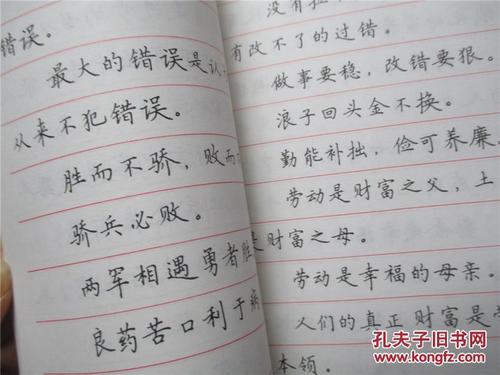 错误。
最大的错误是认
从来不犯错误。
胜而不骄，败而
骄兵必败。
两军相遇勇者胜
良药苦口利于病
没有
有改不了的过错。
做事要稳，改错要狠。
浪子回头金不换。
勤能补拙，俭可养廉
劳动是财富之父，土
是财富之母。
劳动是幸福的母亲。
人们的真正财富是
本领。
孔夫子旧书网
www.kongfz.com